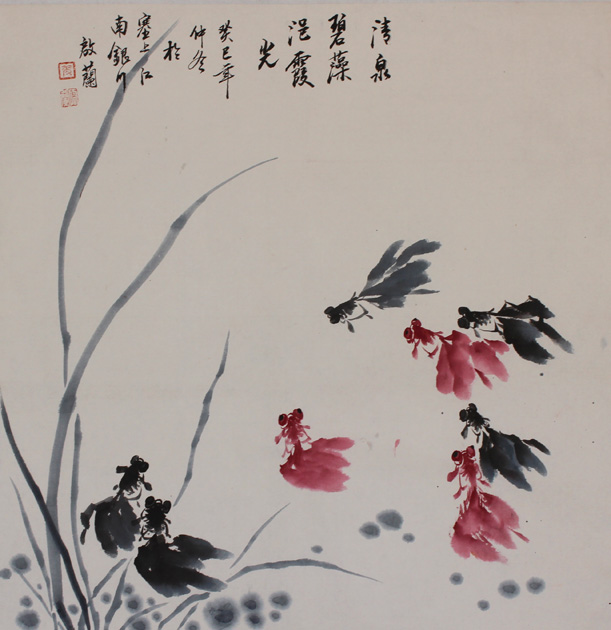 清泉
碧藻
浥霞
光
癸巳年
仲冬
於
塞上江
南銀川
啟蘭